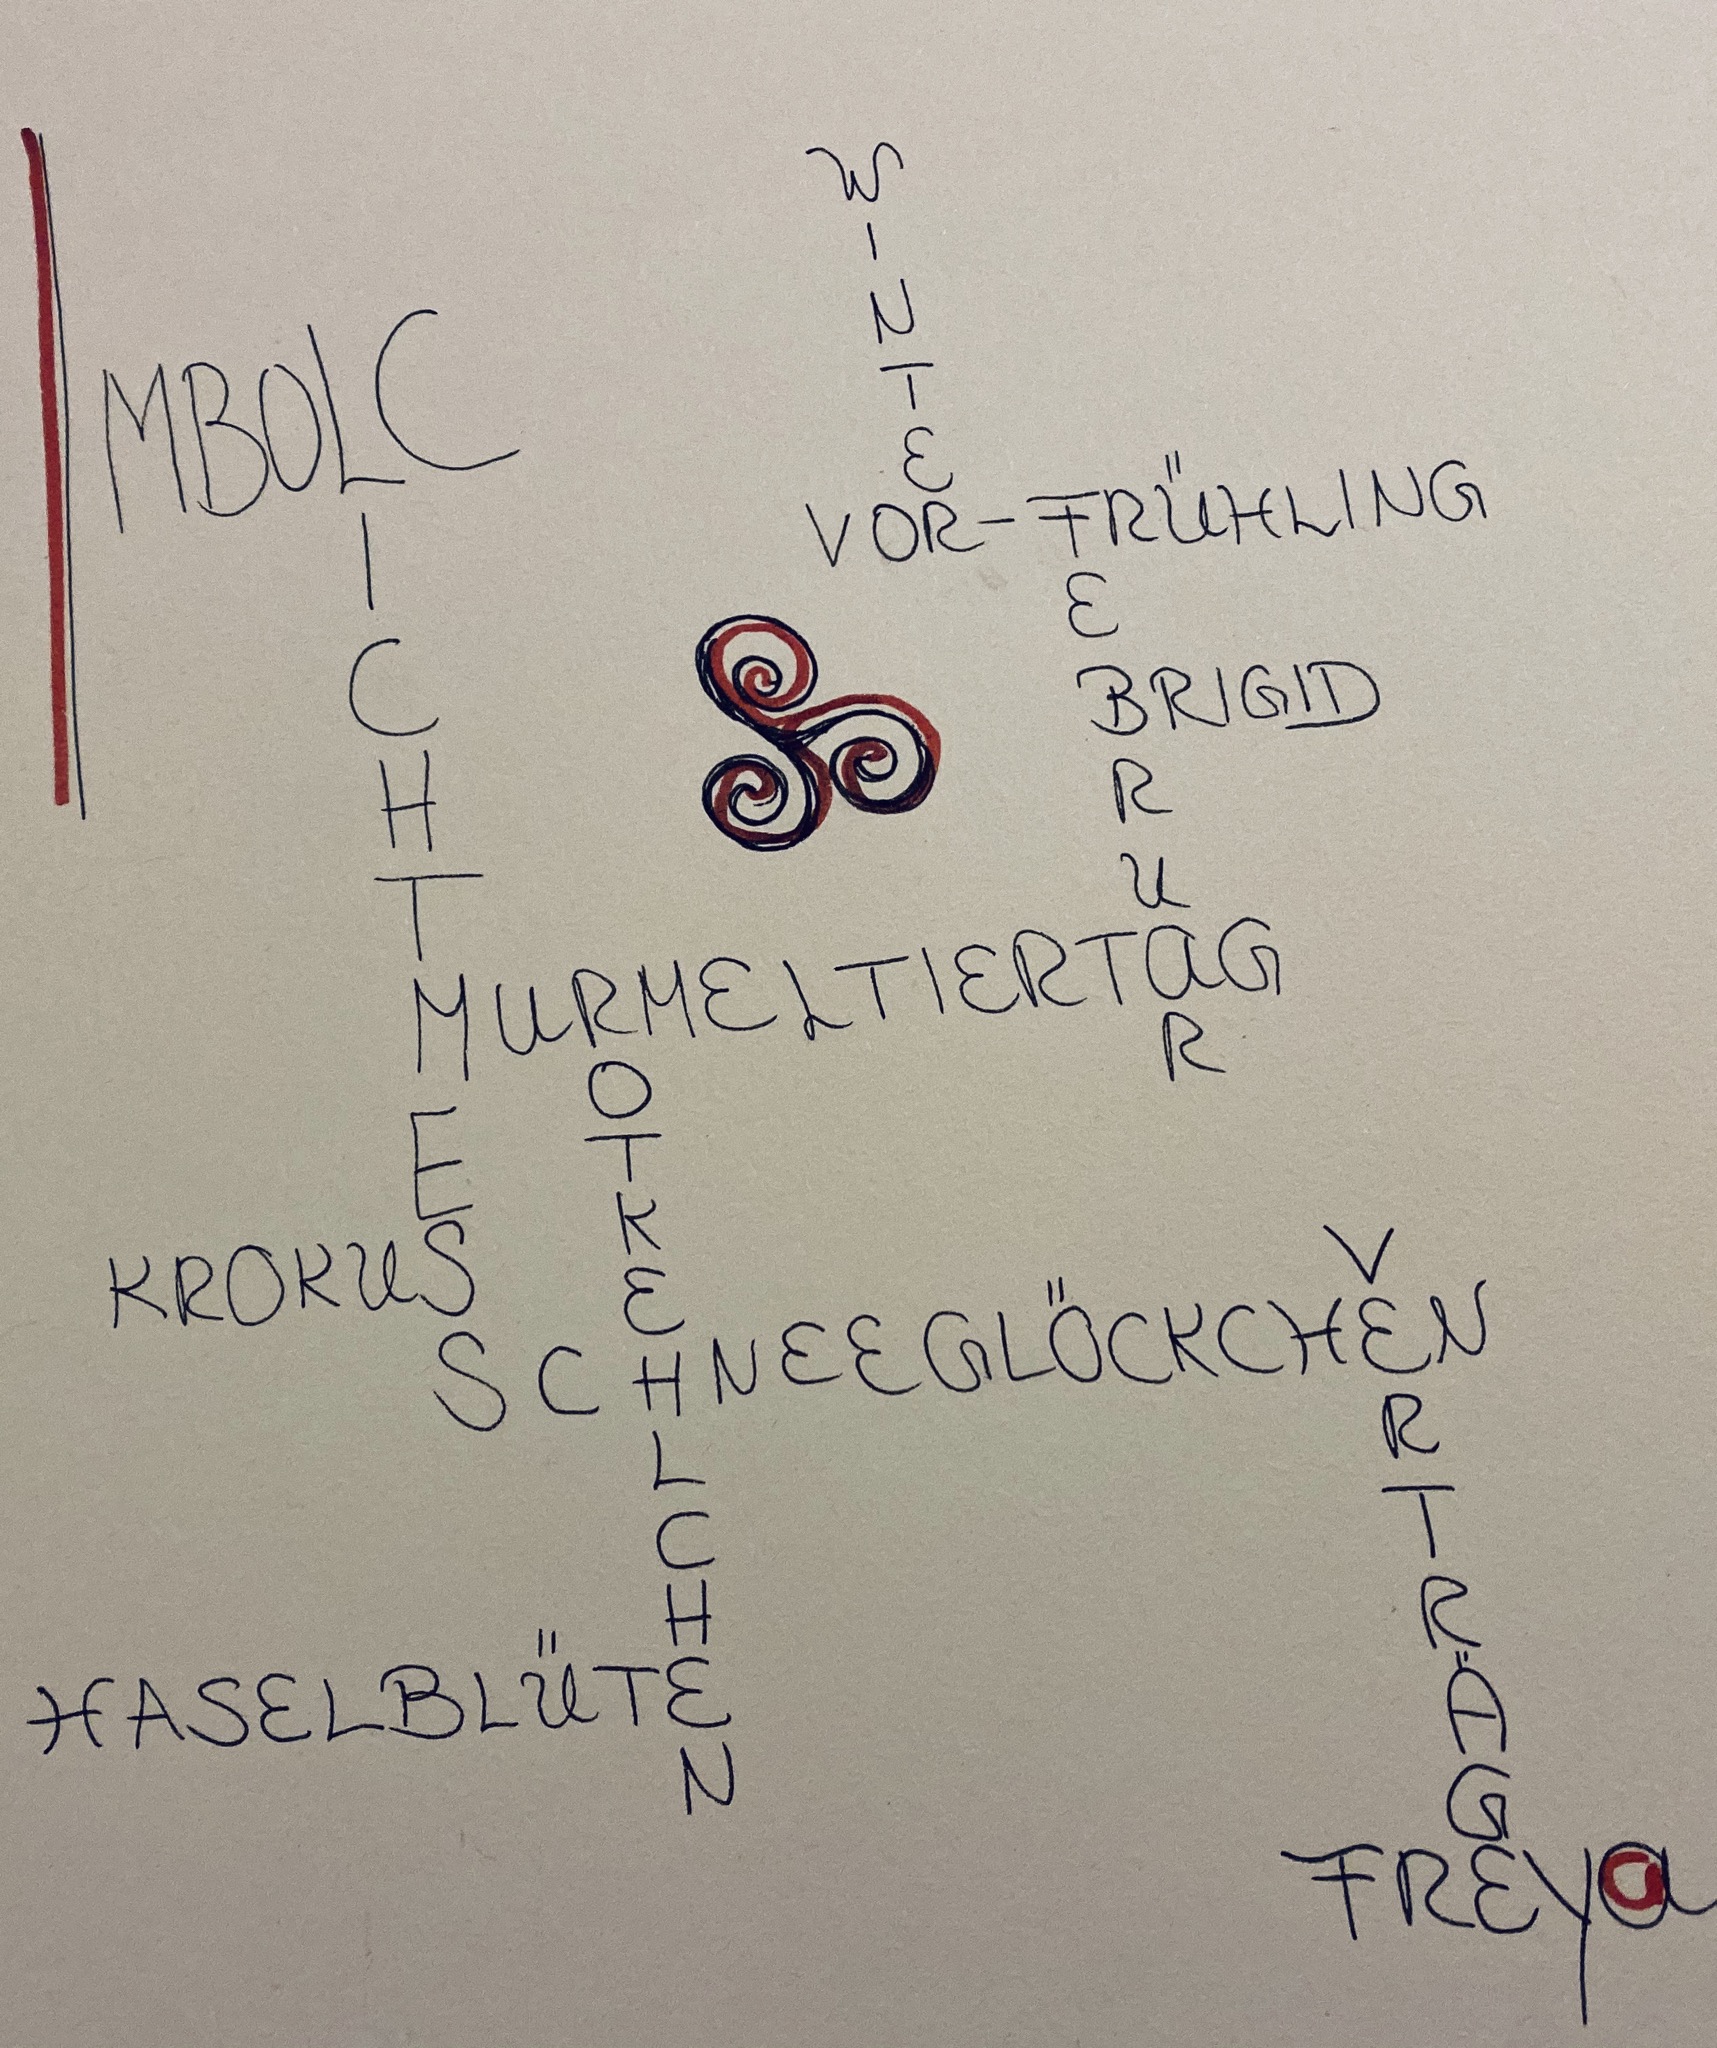 WINTER
IMBOLC
VOR-FRÜHLING
LICHTMESS
FEBRUAR
BRIGID
MURMELTIERTAG
ROTKEHLCHEN
KROKUS
VERTRÄGE
SCHNEEGLÖCKCHEN
HASELBLÜTE
FREYA